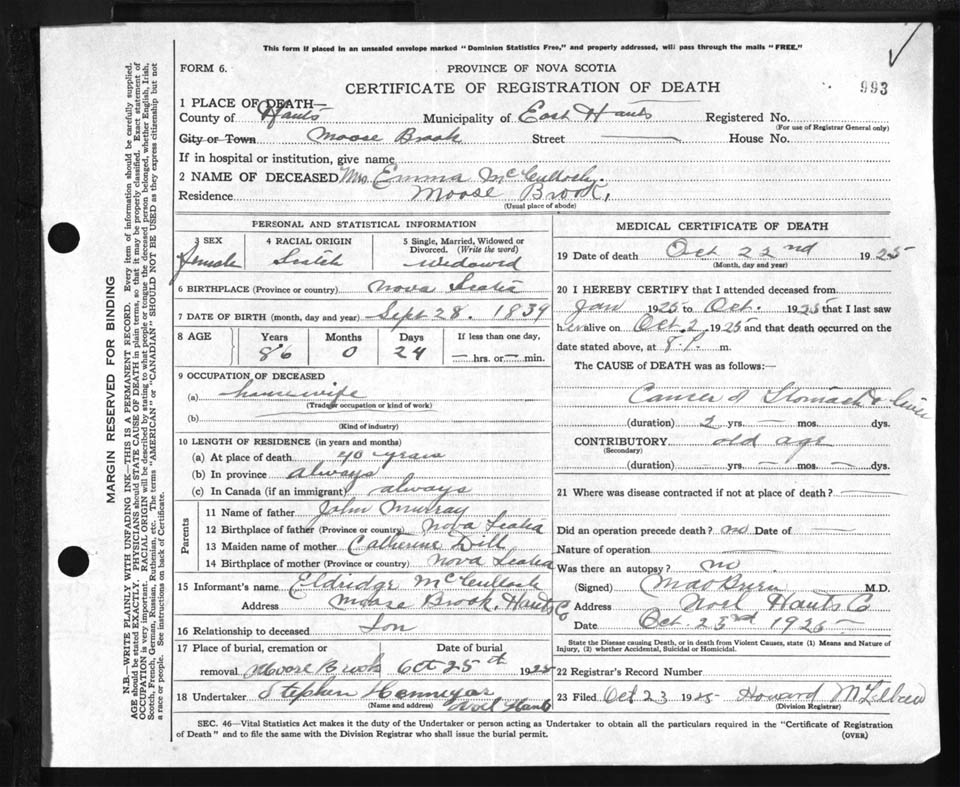 This form if placed in an unsealed envelope marked "Dominion Statistics Free," and properly addressed, will pass through the mails "FREE."
FORM 6.
PROVINCE OF NOVA SCOTIA
CERTIFICATE OF REGISTRATION OF DEATH
993
1 PLACE OF DEATH—
County of Hants Municipality of East Hants Registered No.
(For use of Registrar General only)
City or Town Moose Brook Street House No.
If in hospital or institution, give name
2 NAME OF DECEASED Mrs Emma McCulloch.
Residence Moose Brook,
(Usual place of abode)
PERSONAL AND STATISTICAL INFORMATION
3 SEX 4 RACIAL ORIGIN 5 Single, Married, Widowed or Divorced. (Write the word)
female Scotch Widowed
6 BIRTHPLACE (Province or country) Nova Scotia
7 DATE OF BIRTH (month, day and year) Sept 28. 1839
8 AGE Years Months Days If less than one day,
86 0 24 — hrs. or — min.
9 OCCUPATION OF DECEASED
(a) housewife
(Trade, occupation or kind of work)
(b)
(Kind of industry)
10 LENGTH OF RESIDENCE (in years and months)
(a) At place of death 40 years
(b) In province always
(c) In Canada (if an immigrant) always
Parents
11 Name of father John Murray
12 Birthplace of father (Province or country) Nova Scotia
13 Maiden name of mother Catherine Dill
14 Birthplace of mother (Province or country) Nova Scotia
15 Informant's name Eldridge McCulloch
Address Moose Brook, Hants Co
16 Relationship to deceased Son
17 Place of burial, cremation or Date of burial
removal Moose Brook Oct 25th 1925
18 Undertaker Stephen Hennigar
(Name and address) Noel Hants
MEDICAL CERTIFICATE OF DEATH
19 Date of death Oct 22nd 1925
(Month, day and year)
20 I HEREBY CERTIFY that I attended deceased from
Jan 1925 to Oct. 1925 that I last saw
her alive on Oct. 2 1925 and that death occurred on the
date stated above, at 8.P. m.
The CAUSE of DEATH was as follows:—
Cancer of Stomach & liver
(duration) 2 yrs. — mos. dys.
CONTRIBUTORY old age
(Secondary)
(duration) yrs. — mos. — dys.
21 Where was disease contracted if not at place of death?
Did an operation precede death? no Date of —
Nature of operation
Was there an autopsy? no
(Signed) M.D.
Address Noel Hants Co
Date Oct. 23rd 1925
State the Disease causing Death, or in death from Violent Causes, state (1) Means and Nature of Injury, (2) whether Accidental, Suicidal or Homicidal.
22 Registrar's Record Number
23 Filed Oct 23 1925 Howard
(Division Registrar)
SEC. 46—Vital Statistics Act makes it the duty of the Undertaker or person acting as Undertaker to obtain all the particulars required in the "Certificate of Registration
of Death" and to file the same with the Division Registrar who shall issue the burial permit.
(OVER)
MARGIN RESERVED FOR BINDING
N.B.—WRITE PLAINLY WITH UNFADING INK—THIS IS A PERMANENT RECORD. Every item of information should be carefully supplied.
AGE should be stated EXACTLY. PHYSICIANS should STATE CAUSE OF DEATH in plain terms, so that it may be properly classified. Exact statement of
OCCUPATION is very important. RACIAL ORIGIN will be described by stating to what people or tongue the deceased person belonged, whether English, Irish,
Scotch, French, German, Russian, Ruthenian, etc. The terms "AMERICAN" or "CANADIAN" SHOULD NOT BE USED as they express citizenship but not
a race or people. See instructions on back of Certificate.